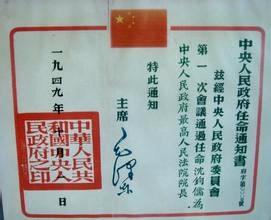 中央人民政府任命通知書
府字第
茲經中央人民政府委員會
第一次會議通過任命沈鈞儒為
中央人民政府最高人民法院院長
特此通知
主席
毛澤東
一九四九年十月日
中華人民共
和國中央人
民政府之印